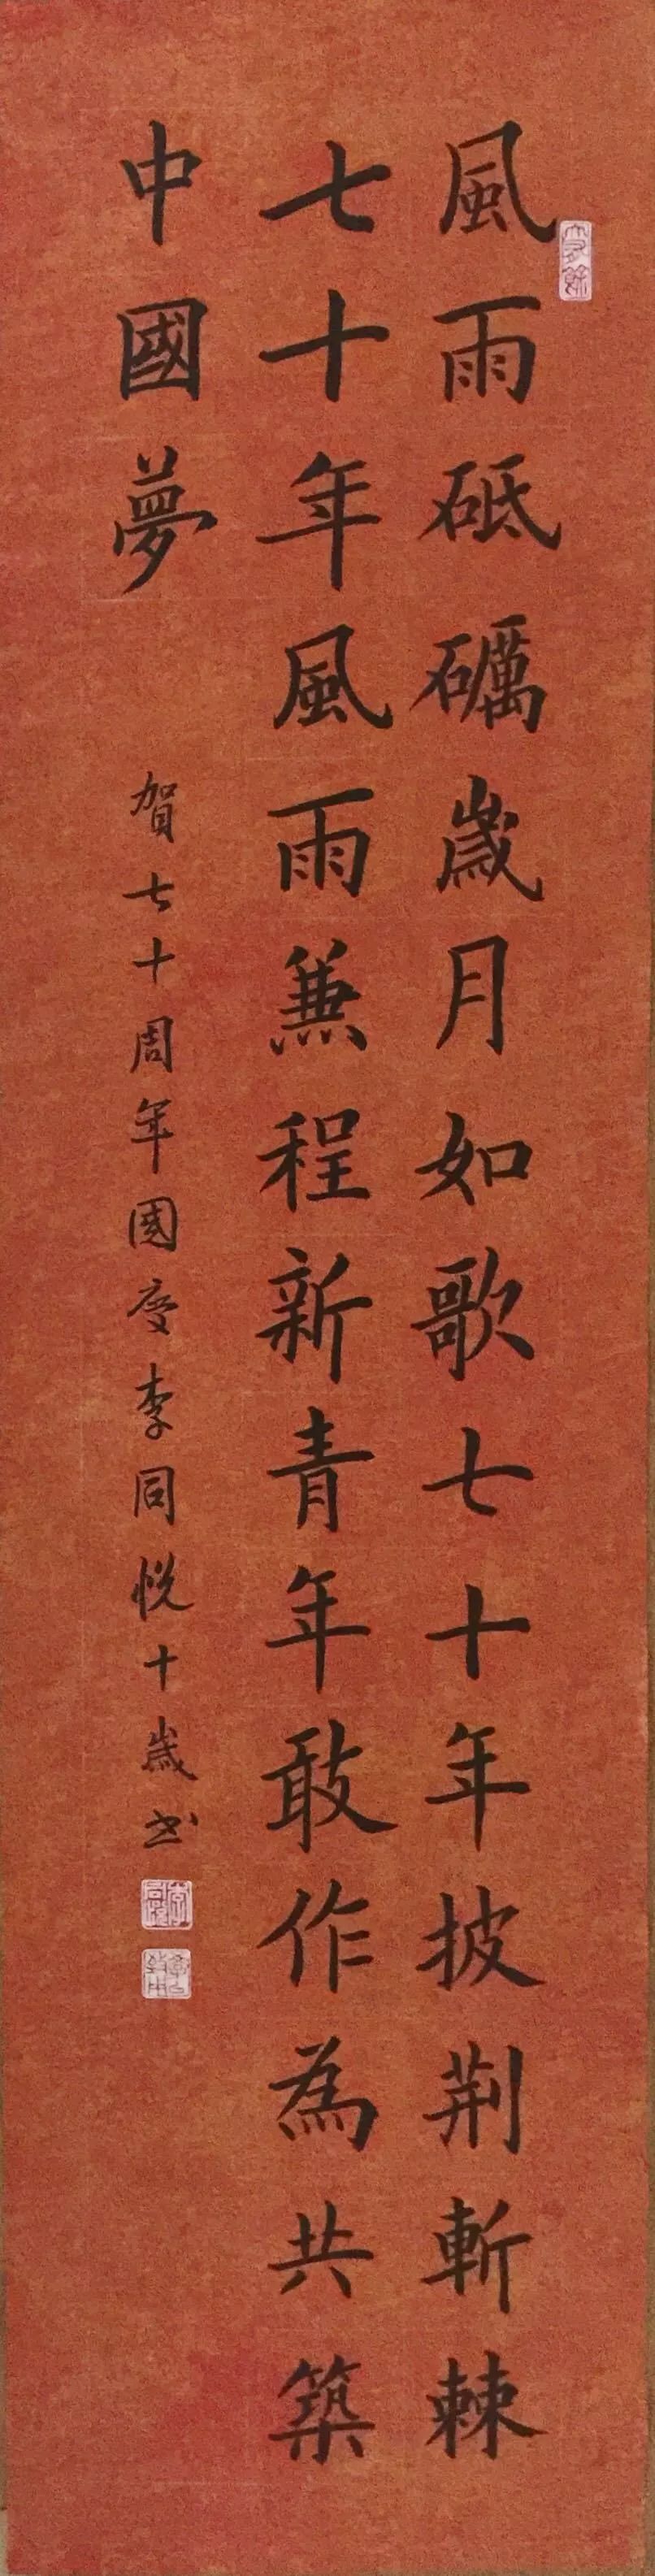 風雨砥礪歲月如歌七十年披荆斬棘
七十年風雨兼程新青年敢作為共築
中國夢
賀七十周年國慶李同悦十歲书